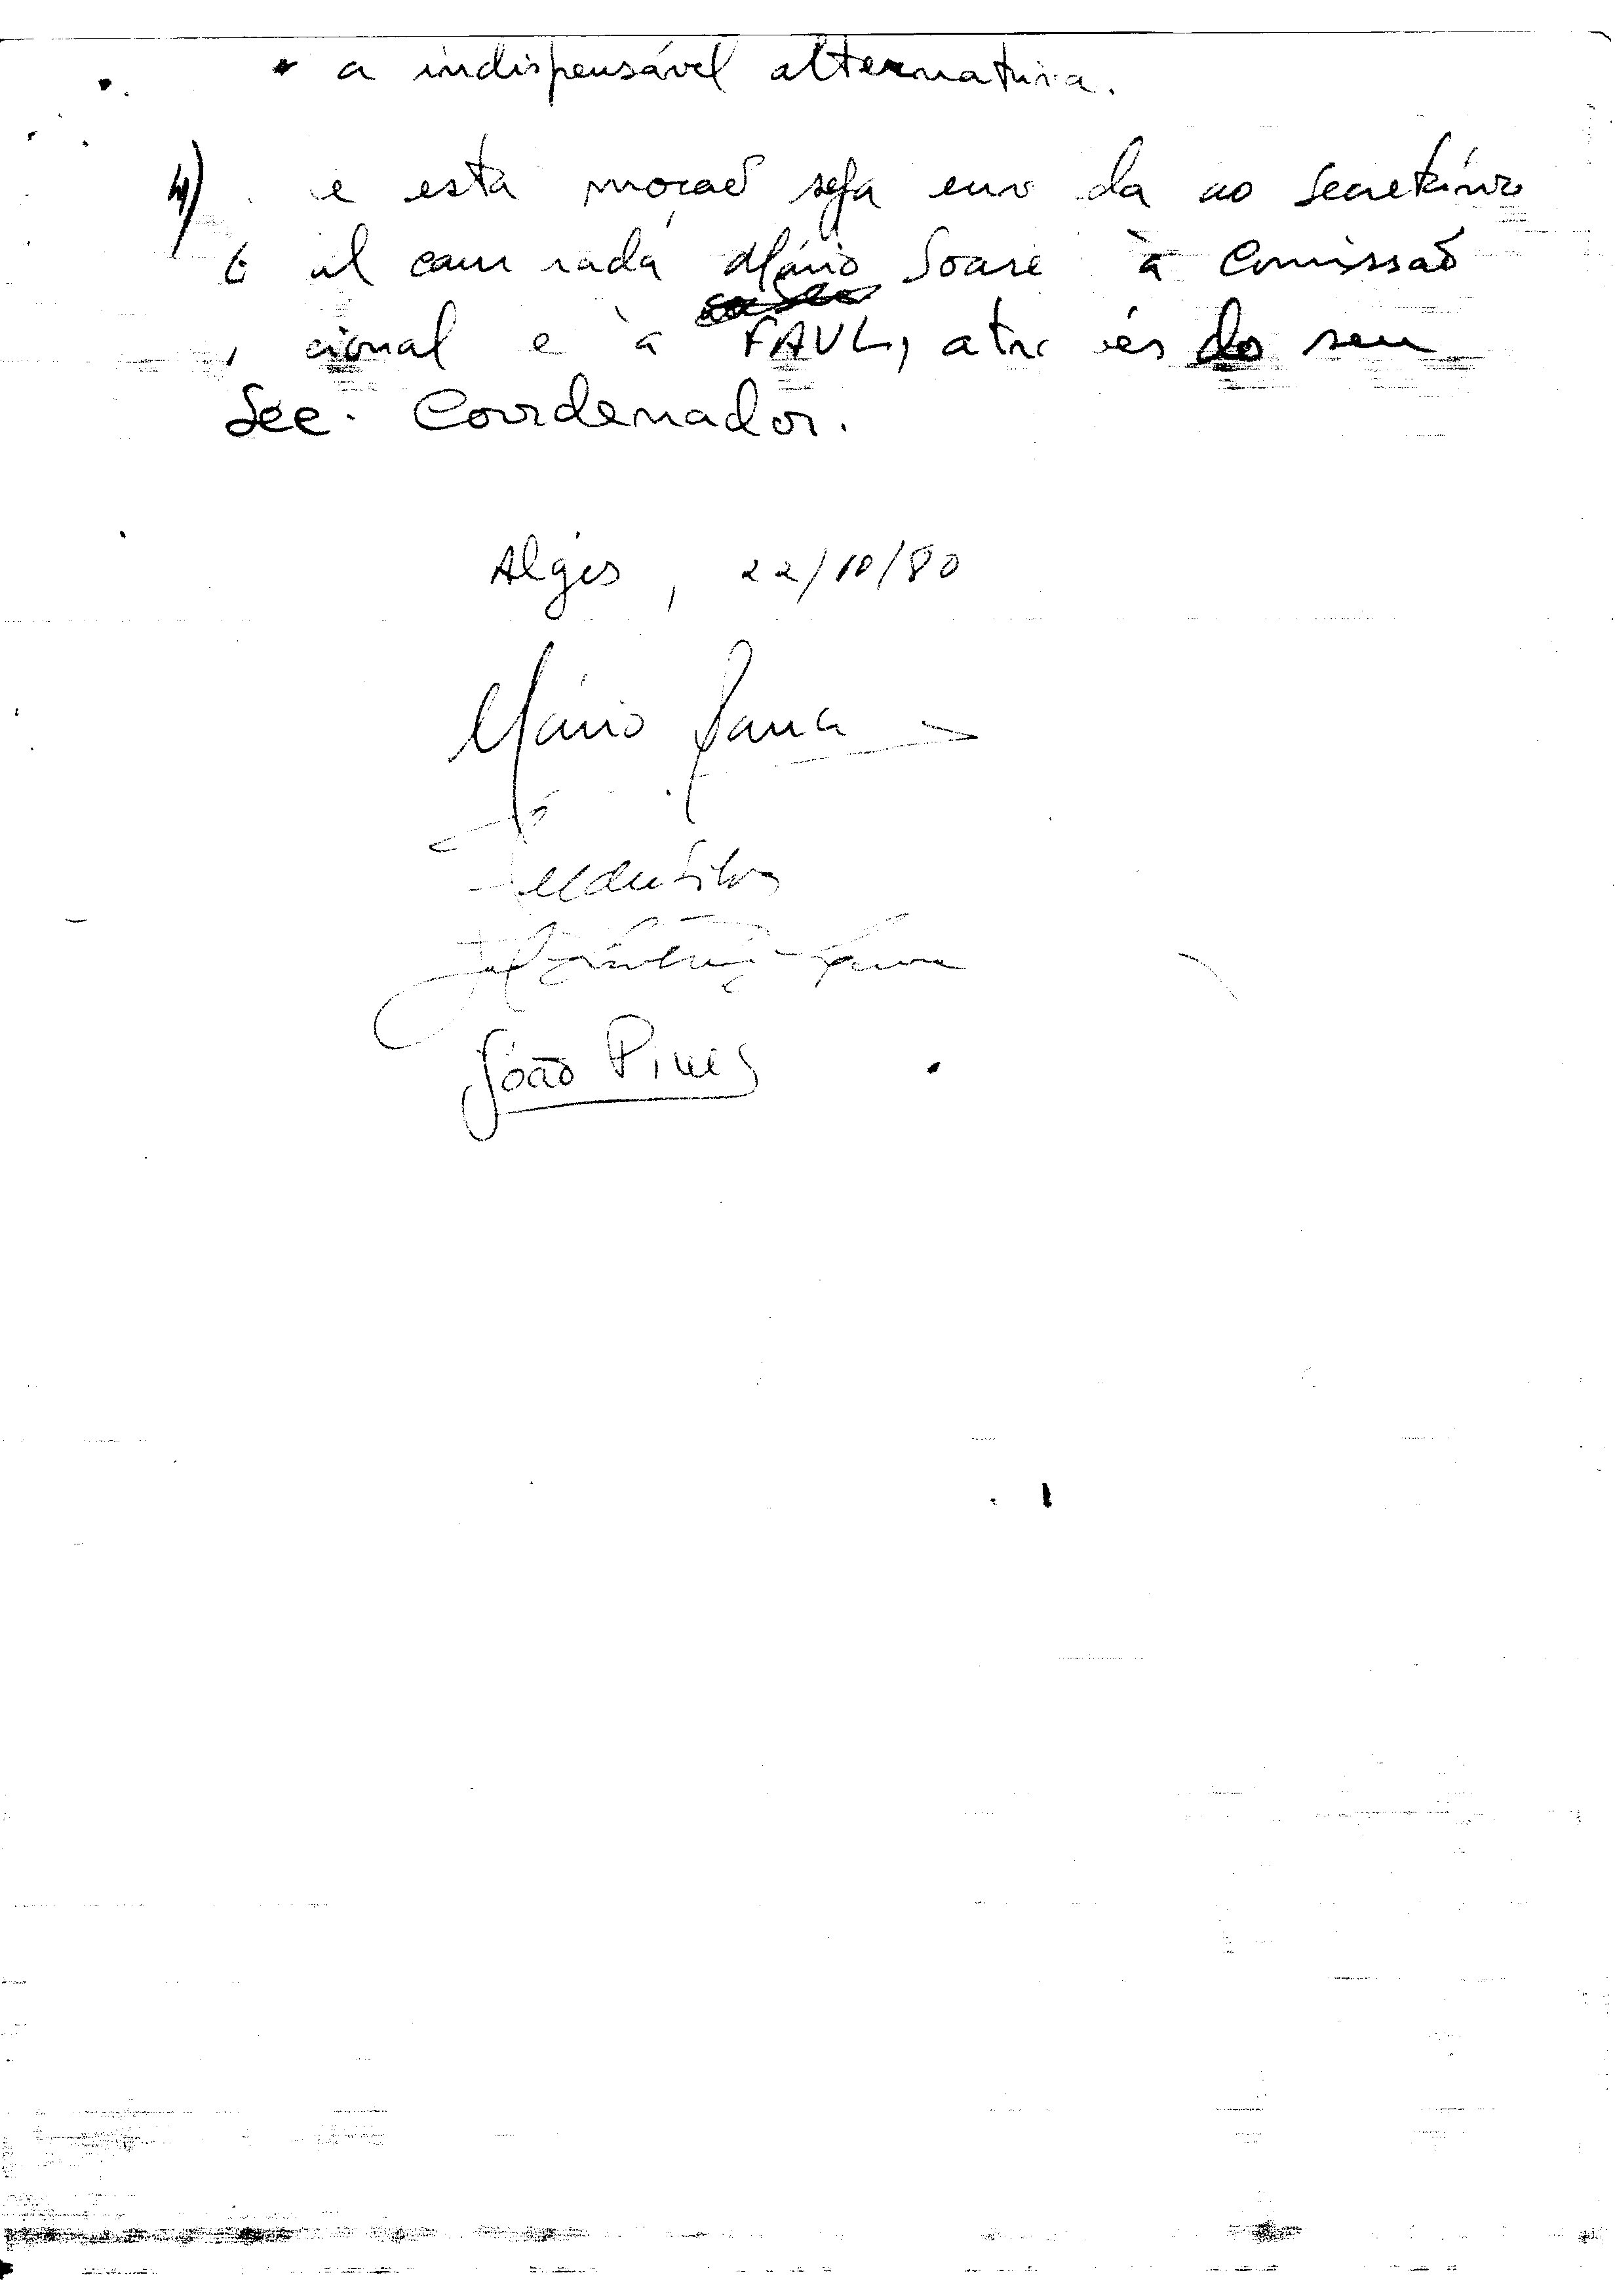 a indispensável alternativa.
4) e esta moção seja env da ao Secretário
G al cam rada Mário Soare à Comissão
cional e à FAUL, atr vés do seu
Sec. Coordenador.
Algés, 22/10/80
Mário
João Pires